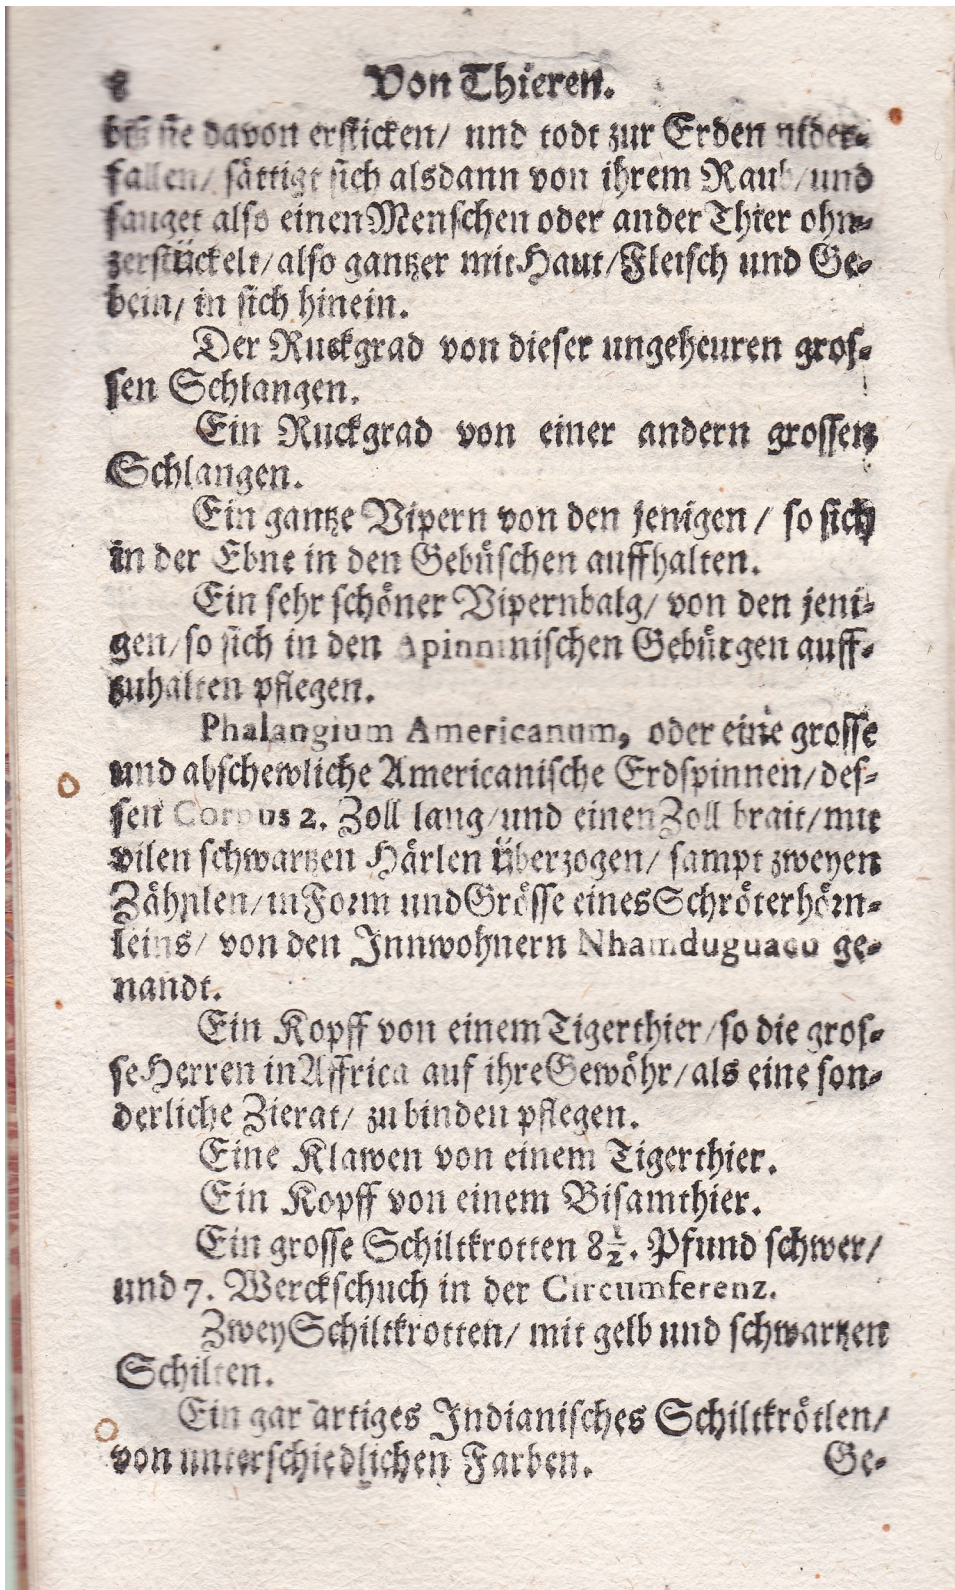 8 Von Thieren.
biß sie davon ersticken/ und todt zur Erden nider-
fallen/ sättigt sich alsdann von ihrem Raub/und
sauget also einen Menschen oder ander Thier ohn-
zerstückelt/also gantzer mit Haut/Fleisch und Ge-
bein/ in sich hinein.
Der Ruckgrad von dieser ungeheuren gros-
sen Schlangen.
Ein Ruckgrad von einer andern grossen
Schlangen.
Ein gantze Vipern von den jenigen/ so sich
in der Ebne in den Gebůschen auffhalten.
Ein sehr schöner Vipernbalg/ von den jeni-
gen/so sich in den Apinninischen Gebůrgen auff-
zuhalten pflegen.
Phalangium Americanum, oder eine grosse
und abschewliche Americanische Erdspinnen/des-
sen Corpus 2. Zoll lang/und einen Zoll brait/mit
vilen schwartzen Härlen überzogen/ sampt zweyen
Zähnlen/in Form und Grösse eines Schröterhörn-
leins/ von den Innwohnern Nhamduguacu ge-
nandt.
Ein Kopff von einem Tigerthier/so die gros-
se Herren in Affrica auf ihre Gewöhr/als eine son-
derliche Zierat/ zu binden pflegen.
Eine Klawen von einem Tigerthier.
Ein Kopff von einem Bisamthier.
Ein grosse Schiltkrotten 8½. Pfund schwer/
und 7. Werckschuch in der Circumferenz.
Zwey Schiltkrotten/ mit gelb und schwartzen
Schilten.
Ein gar artiges Indianisches Schiltkrötlen/
von unterschiedlichen Farben. Ge-